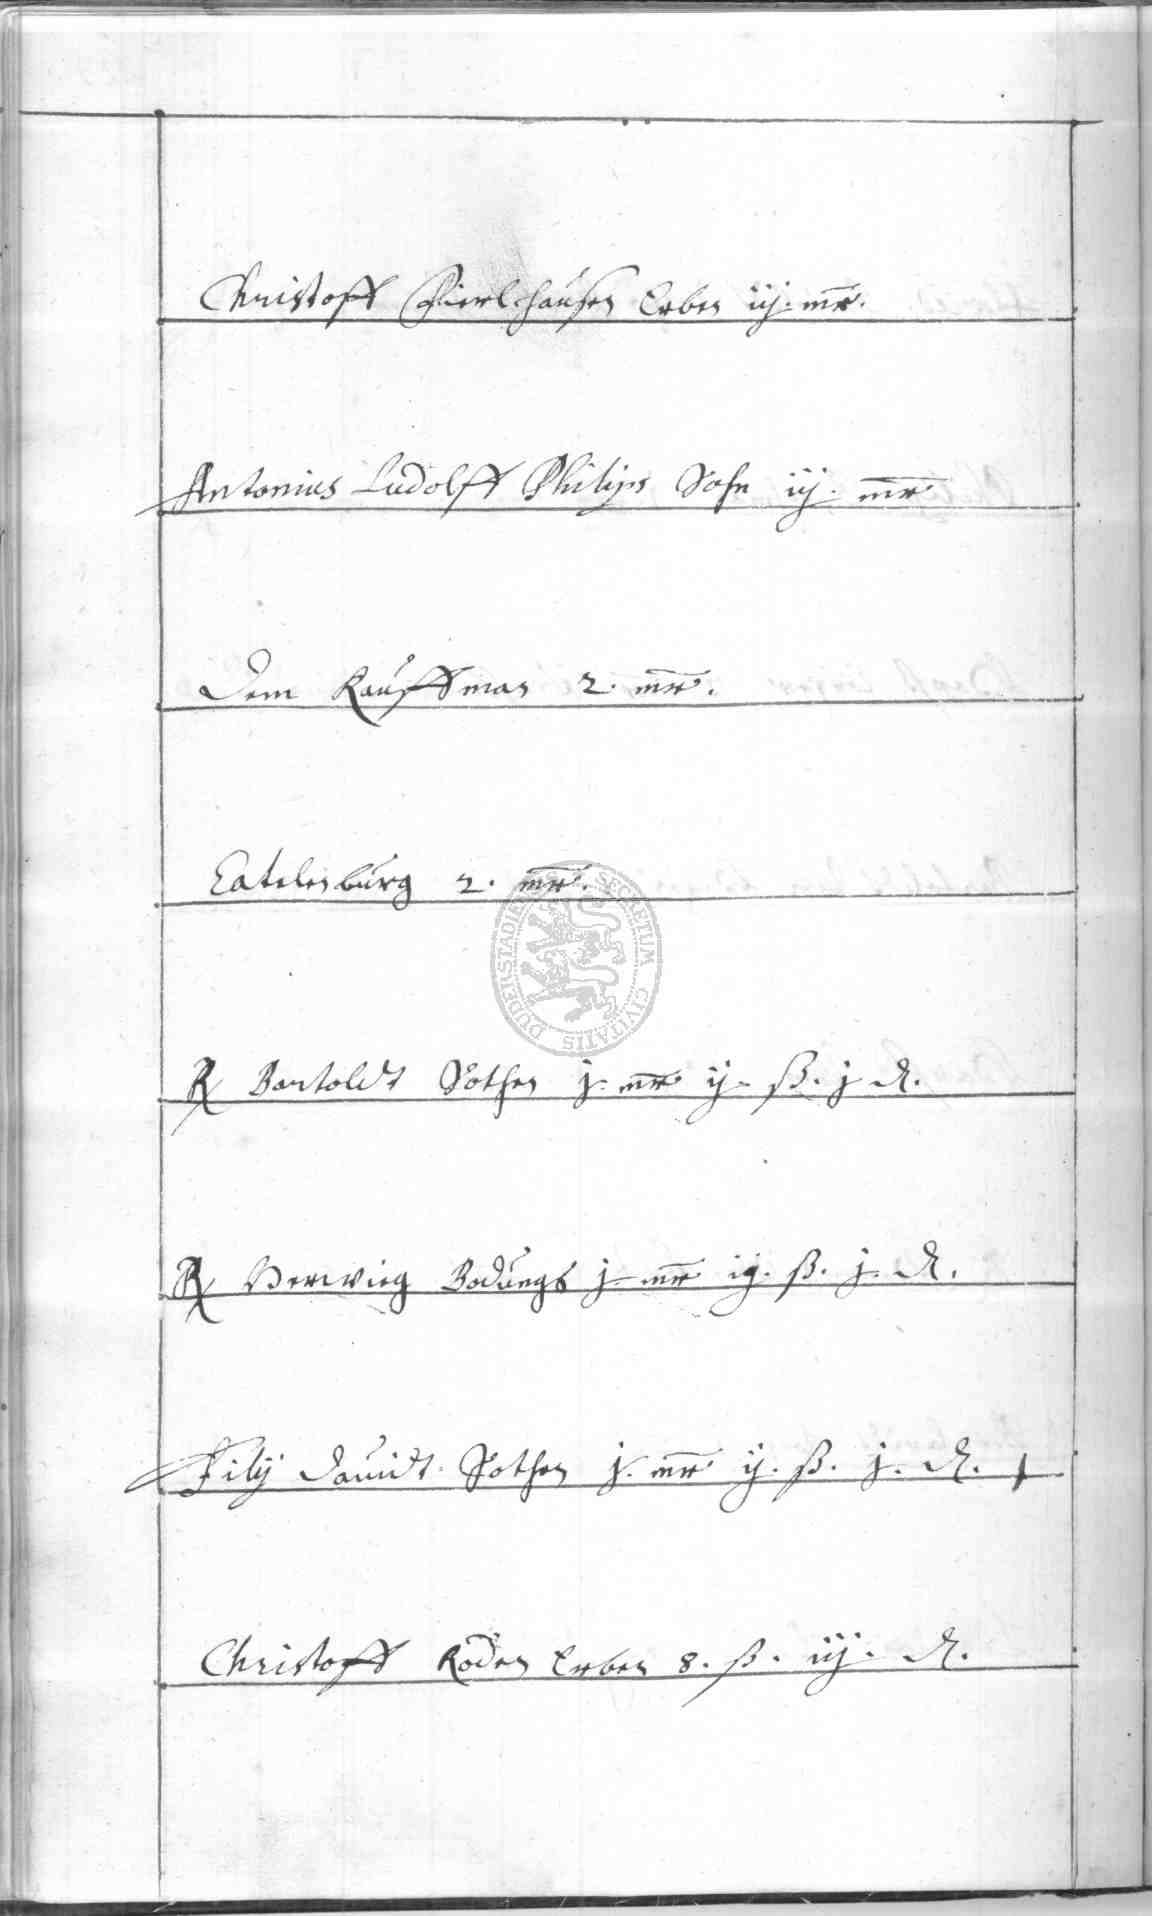 Christoff Hierlhausen Erben iij. mr.
Antonius Ludolff Philips Sohn iij. mr
Dem Kauffman 2 mr.
Catelenburg 2. mr.
DUDERSTADIENSIS SECRETUM CIVITATIS
R Bartoldt Sothen j. mr ij. ß. j ₰.
R Herwieg Bodungs j. mr ij. ß. j. ₰.
Filij Dauidt Sothen j. mr ij. ß. j. ₰.
Christoff Roden Erben 8. ß. iij. ₰.